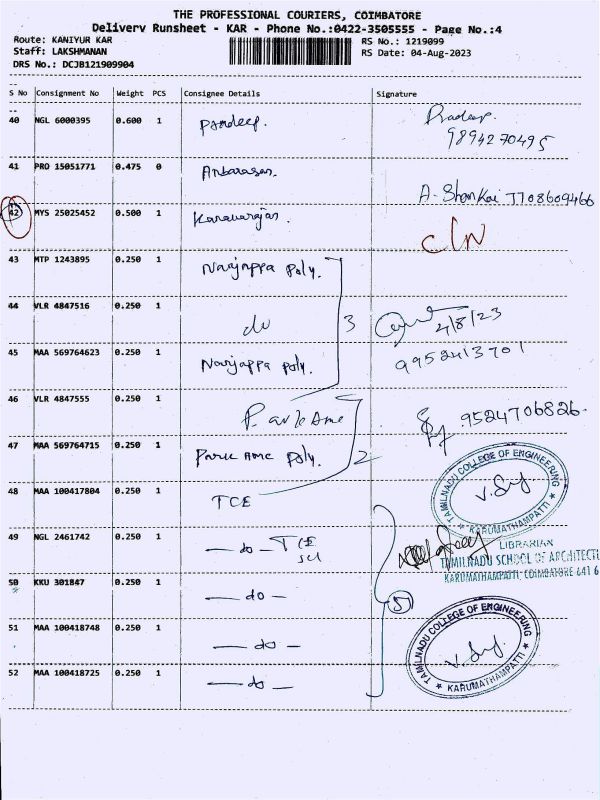 THE PROFESSIONAL COURIERS, COIMBATORE
Delivery Runsheet - KAR - Phone No.:0422-3505555 - Page No.:4
Route: KANIYUR KAR RS No.: 1219099
Staff: LAKSHMANAN RS Date: 04-Aug-2023
DRS No.: DCJB121909904
S No Consignment No Weight PCS Consignee Details Signature
40 NGL 6000395 0.600 1 Pradeep. Pradeep.
9894270495
41 PRO 15051771 0.475 0 Anbarasan.
A. Shankai 7708609466
42 MYS 25025452 0.500 1 C/N
43 MTP 1243895 0.250 1 Nanjappa Poly.
44 VLR 4847516 0.250 1 do 3 4/8/23
45 MAA 569764623 0.250 1 Nanjappa Poly. 9952413701
46 VLR 4847555 0.250 1 Park Ame 9524706826.
47 MAA 569764715 0.250 1 Park Ame Poly. 2
TAMILNADU COLLEGE OF ENGINEERING
★ KARUMATHAMPATTI ★
48 MAA 100417804 0.250 1 TCE
49 NGL 2461742 0.250 1 — do — TCE
LIBRARIAN
TAMILNADU SCHOOL OF ARCHITECTU
KARUMATHAMPATTI, COIMBATORE 641 6
50 KKU 301847 0.250 1 — do — 5
51 MAA 100418748 0.250 1 — do —
TAMILNADU COLLEGE OF ENGINEERING
★ KARUMATHAMPATTI ★
52 MAA 100418725 0.250 1 — do —